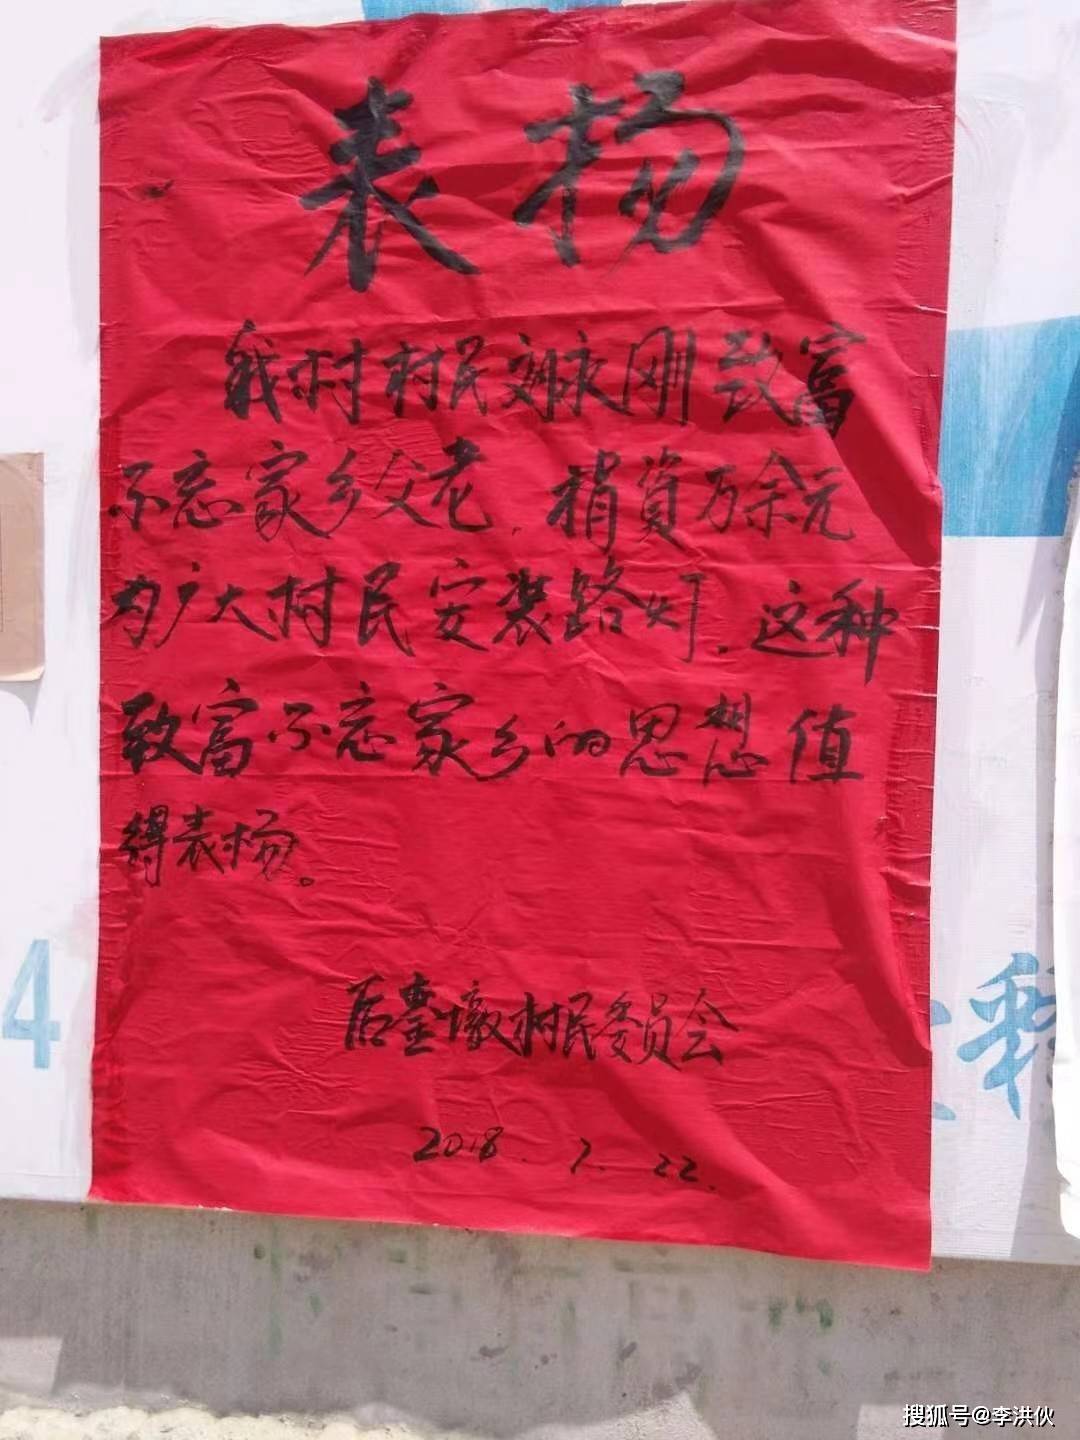 表扬
我村村民刘永刚致富
不忘家乡父老,捐资万余元
为广大村民安装路灯,这种
致富不忘家乡的思想值
得表扬。
后塾墩村民委员会
2018.7.22.
4
搜狐号@李洪伙